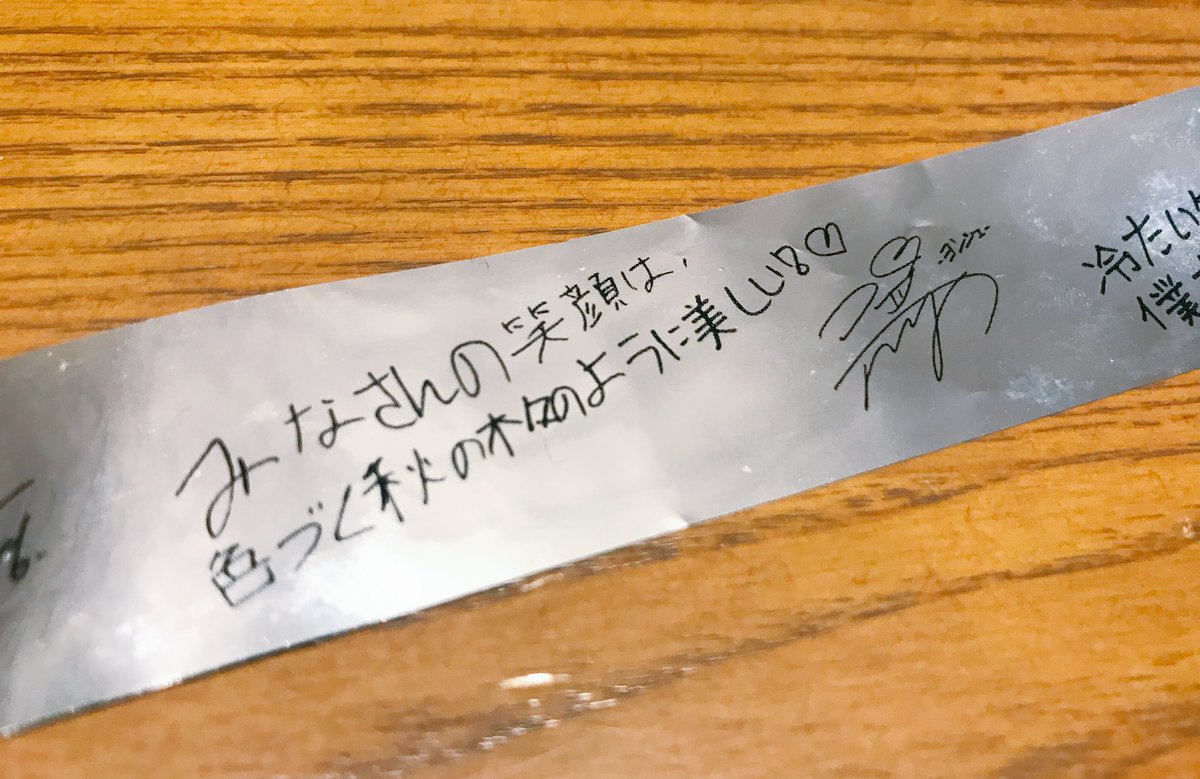 みなさんの笑顔は、
色づく秋の木々のように美しい♡
-ヨンジュン-
冷たい
僕